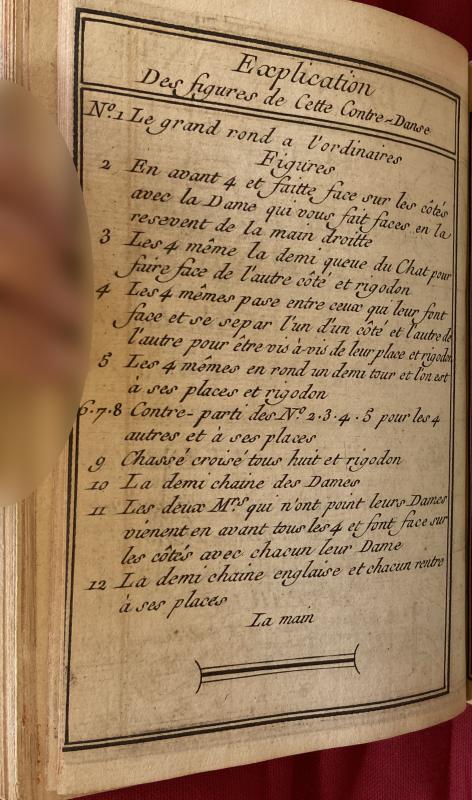 Explication
Des figures de Cette Contre-Danse
Nº. 1 Le grand rond a l'ordinaires
Figures
2 En avant 4 et faitte face sur les côtés
avec la Dame qui vous fait faces en la
resevent de la main droitte
3 Les 4 même la demi queue du Chat pour
faire face de l'autre côté et rigodon
4 Les 4 mêmes pase entre ceux qui leur font
face et se separ l'un d'un côté et l'autre de
l'autre pour être vis à-vis de leur place et rigodon
5 Les 4 mêmes en rond un demi tour et l'on est
à ses places et rigodon
6.7.8 Contre-parti des Nº 2.3.4.5 pour les 4
autres et à ses places
9 Chassé croisé tous huit et rigodon
10 La demi chaine des Dames
11 Les deux Mrs qui n'ont point leurs Dames
vienent en avant tous les 4 et font face sur
les côtés avec chacun leur Dame
12 La demi chaine englaise et chacun rentre
à ses places
La main